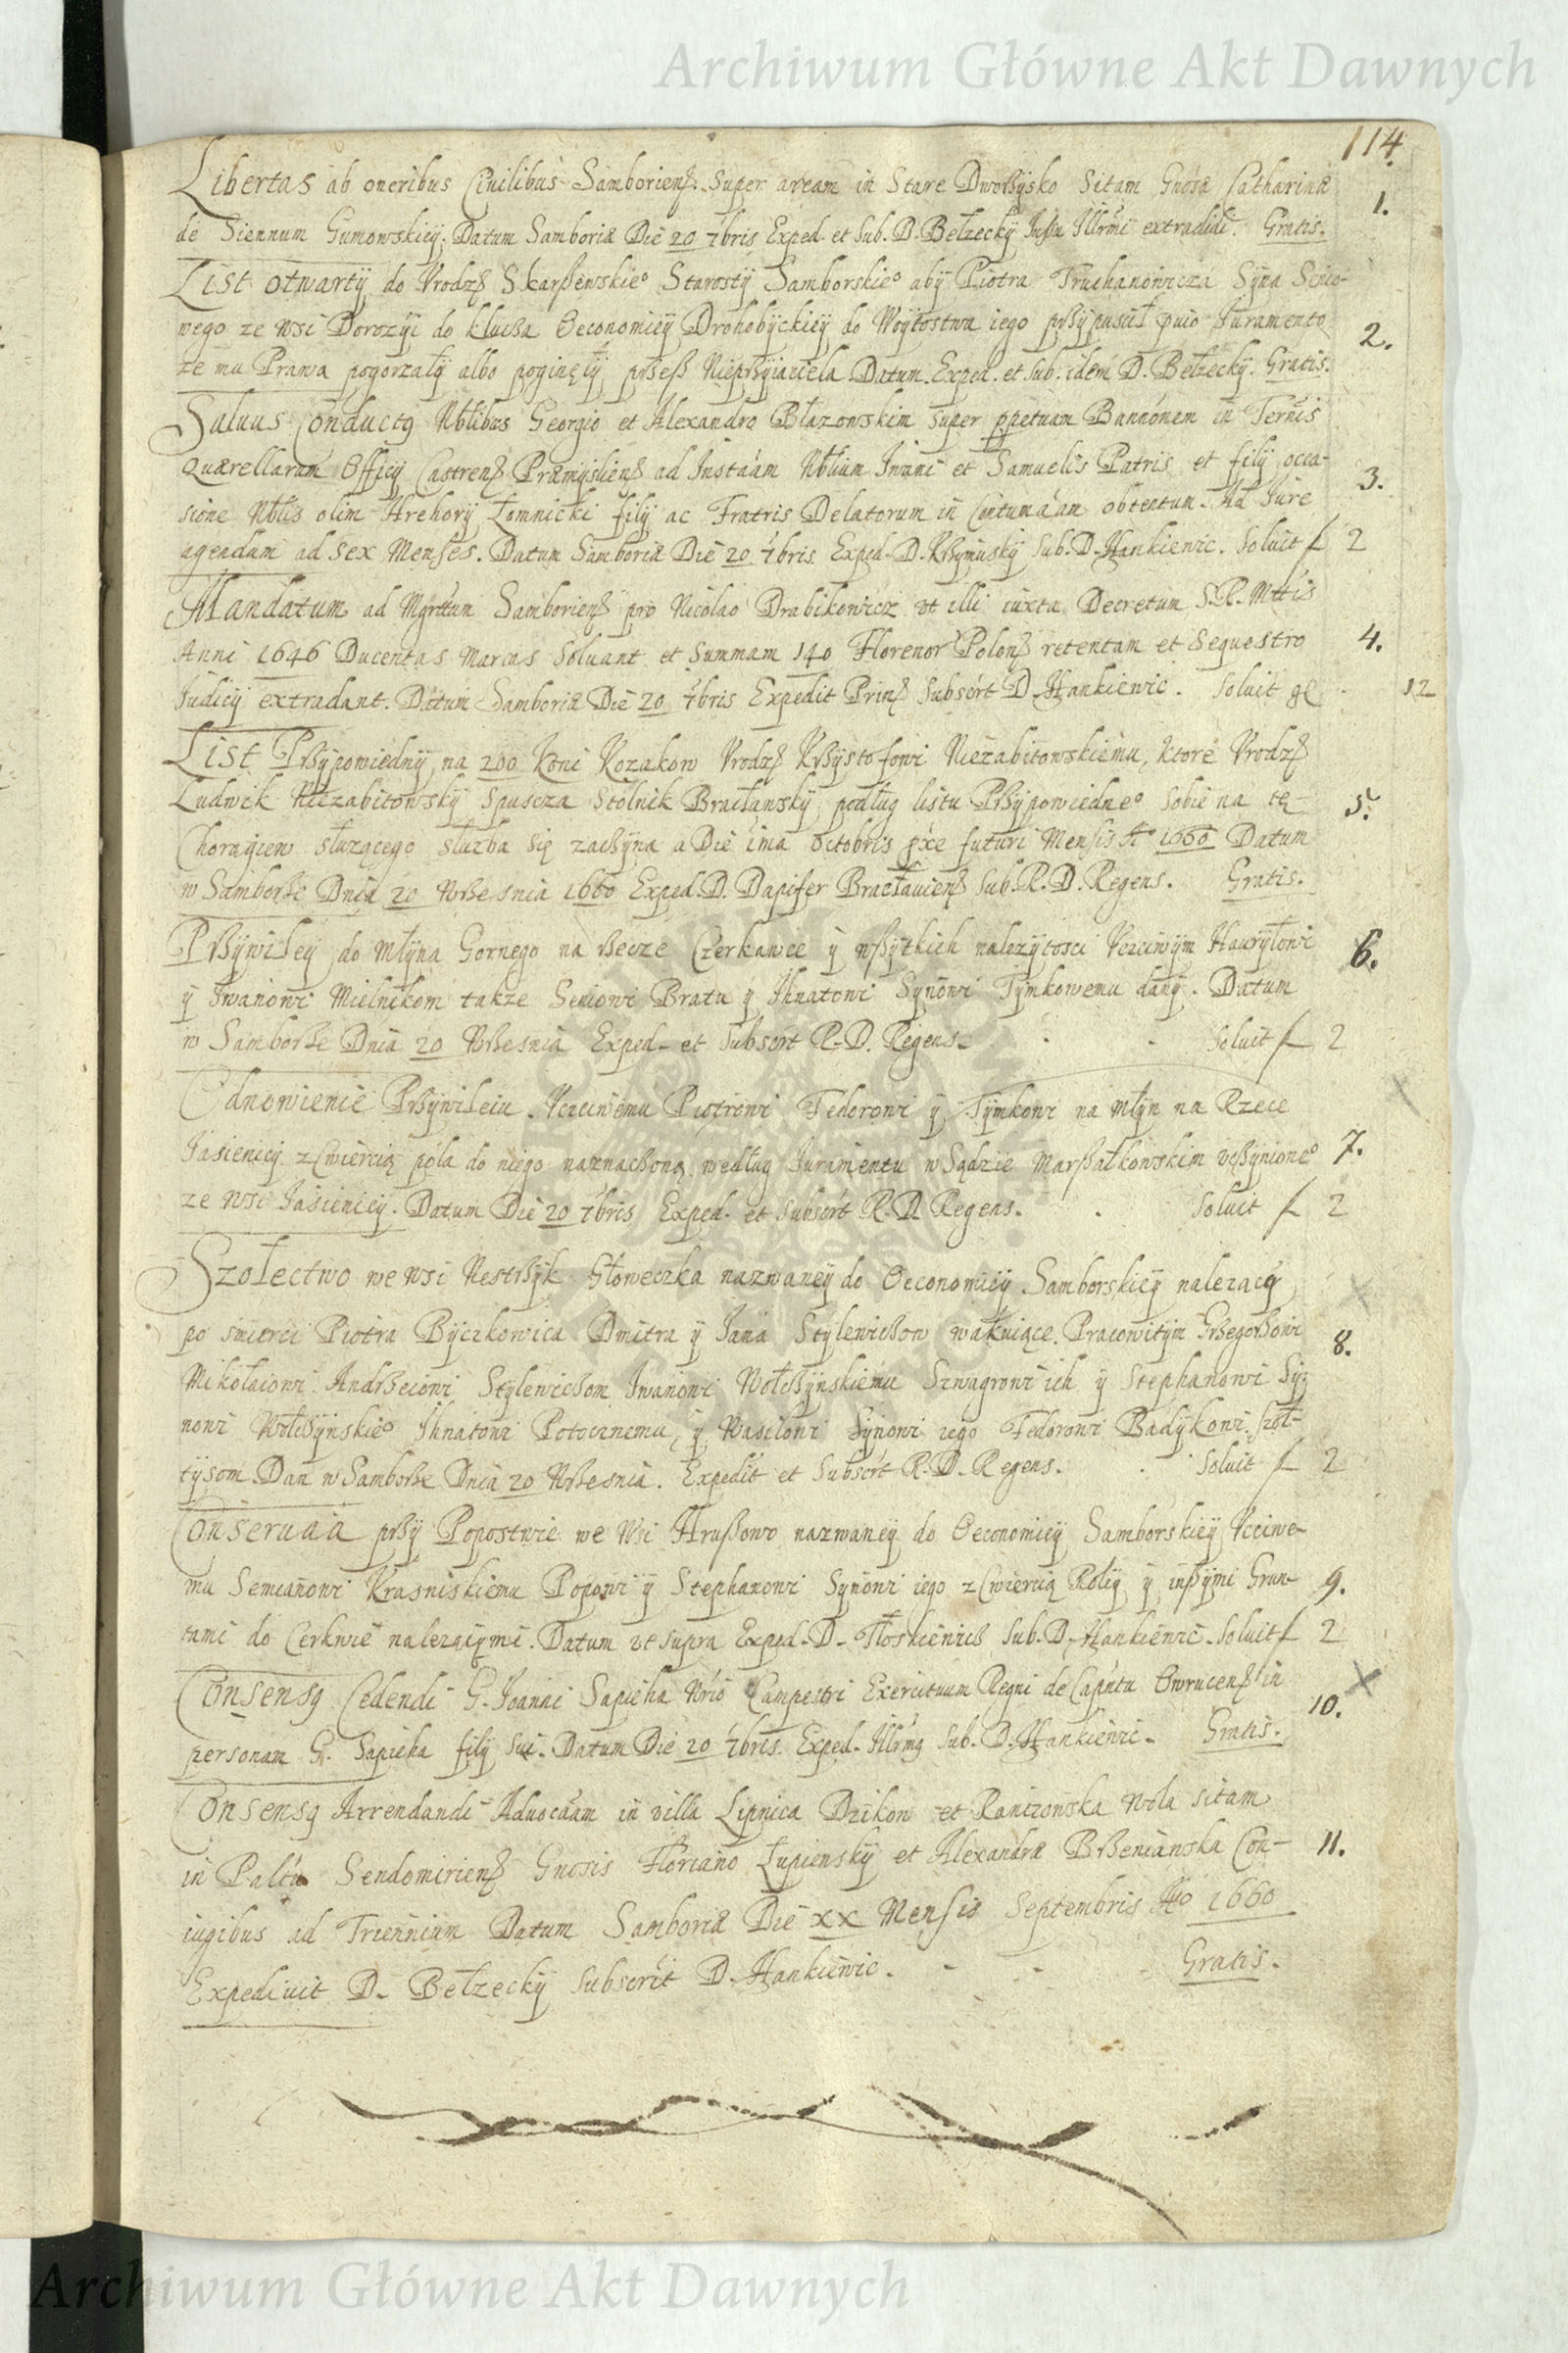 Archiwum Główne Akt Dawnych
114.
Libertas ab oneribus Ciuilibus Samboriens. Super aream in Stare Dworzysko Sitam Gnosæ Catharinæ
1.
de Siennum Gumowskiey. Datum Samboriæ Die 20 7bris Exped. et Sub. D. Bełzecky Jussu Illrmi extradidi. Gratis.
List otwarty do Vrodz Skarszewskie° Starosty Samborskie° aby Piotra Truchanowicza Syna Senio-
wego ze wsi Dorozyi do klucza Oeconomiey Drohobyckiey do Woytostwa iego przypuscił Juramento
2.
ze mu Prawa pogorzały albo poginęły przesz Nieprzyiaciela Datum. Exped. et sub. idem D. Bełzecky. Gratis.
Saluus Conductq Nblibus Georgio et Alexandro Błazowskim super ppetuam Bannonem in Ternis
Quærellarum Officy Castrens Præmysliens ad Instaam Nblium Ioanni et Samuelis Patris et fily occa-
3.
sione Nblis olim Hrehory Łomnicki fily ac Fratris Delatorum in Contumaam obtentum. Ad Iure
agendum ad sex Menses. Datum Samboriæ Die 20 7bris Exped. D. Krzymusky Sub. D. Hankiewic. Soluit f 2
Mandatum ad Mgrttum Samboriens pro Nicolao Drabikowicz vt illi iuxta Decretum S. R. Mttis
Anni 1646 Ducentas Marcas Soluant et Summam 140 Florenor Polons retentam et Sequestro
4.
Iudicy extradant. Datum Samboriæ Die 20 7bris Expedit Prins Subscrt D. Hankiewic. Soluit gl 12
List Przypowiedny na 200 Koni Kozakow Vrodz Krzysztofowi Niezabitowskiemu, ktore Vrodz
Ludwik Niezabitowsky Spuscza Stolnik Bracławsky podług listu Przypowiedne° sobie na tę
5.
Choragiew słuzącego słuzba się zaczyna a Die ima Octobris pxe futuri Mensis A° 1660 Datum
w Samborze Dnia 20 Wrzesnia 1660 Exped. D. Dapifer Bracławiens Sub. R. D. Regens. Gratis.
Przywiley do Młyna Gornego na rzecze Czerkawce y wszytkich nalezytosci Vczciwym Hawryłowi
6.
y Iwanowi Mielnikom takze Seniowi Bratu y Ihnatowi Synowi Tymkowemu dany. Datum
w Samborze Dnia 20 Wrzesnia Exped. et Subscrt R. D. Regens. Soluit f 2
Odnowienie Przywileiu Vczciwemu Piotrowi Fedorowi y Tymkowi na Młyn na Rzece
Iasienicy z Cwiercią pola do niego naznaczoną według Juramentu w Sądzie Marszałkowskim vczynione°
7.
ze wsi Iasienicy. Datum Die 20 7bris Exped. et Subscrt R. D. Regens. Soluit f 2
Szołectwo we wsi Nestrzyk Głoweczka nazwaney do Oeconomiey Samborskiey nalezacey
po smierci Piotra Byczkowica Dmitra y Iana Stylewiczow wakuiące. Pracowitym Grzegorzowi
8.
Mikołaiowi Andrzeiowi Stylewiczom Iwanowi Wołczynskiemu Szwagrowi ich y Stephanowi Sy-
nowi Wołczynskie° Ihnatowi Potocznemu, y Wasilowi Synowi iego Fedorowi Badykowi Szoł-
tysom. Dan w Samborze Dnia 20 Wrzesnia. Expedit et Subscrt R. D. Regens. Soluit f 2
Conseruaa przy Popostwie we Wsi Hruszowo nazwaney do Oeconomiey Samborskiey Vcciwe-
mu Semianowi Krasniskiemu Popowi y Stephanowi Synowi iego z Cwiercią Roley y inszymi Grun-
9.
tami do Cerkwie nalezącymi. Datum vt supra Exped. D. Floskiewicz Sub. D. Hankiewic. Soluit f 2
Consensq Cedendi G. Ioanni Sapieha Nrio Campestri Exercituum Regni de Capntu Owruczens in
10.
personam G. Sapieha fily sui. Datum Die 20 7bris. Exped. Illrmq Sub. D. Hankiewic. Gratis.
Consensq Arrendandi Aduocaam in villa Lipnica Dzikow et Ranizowska Wola sitam
in Paltu Sendomiriens Gnosis Floriano Łupiensky et Alexandra Brzenianska Con-
11.
iugibus ad Triennium Datum Samboriæ Die XX Mensis Septembris A° 1660
Expediuit D. Bełzecky Subscrit D. Hankiewic. Gratis.
Archiwum Główne Akt Dawnych